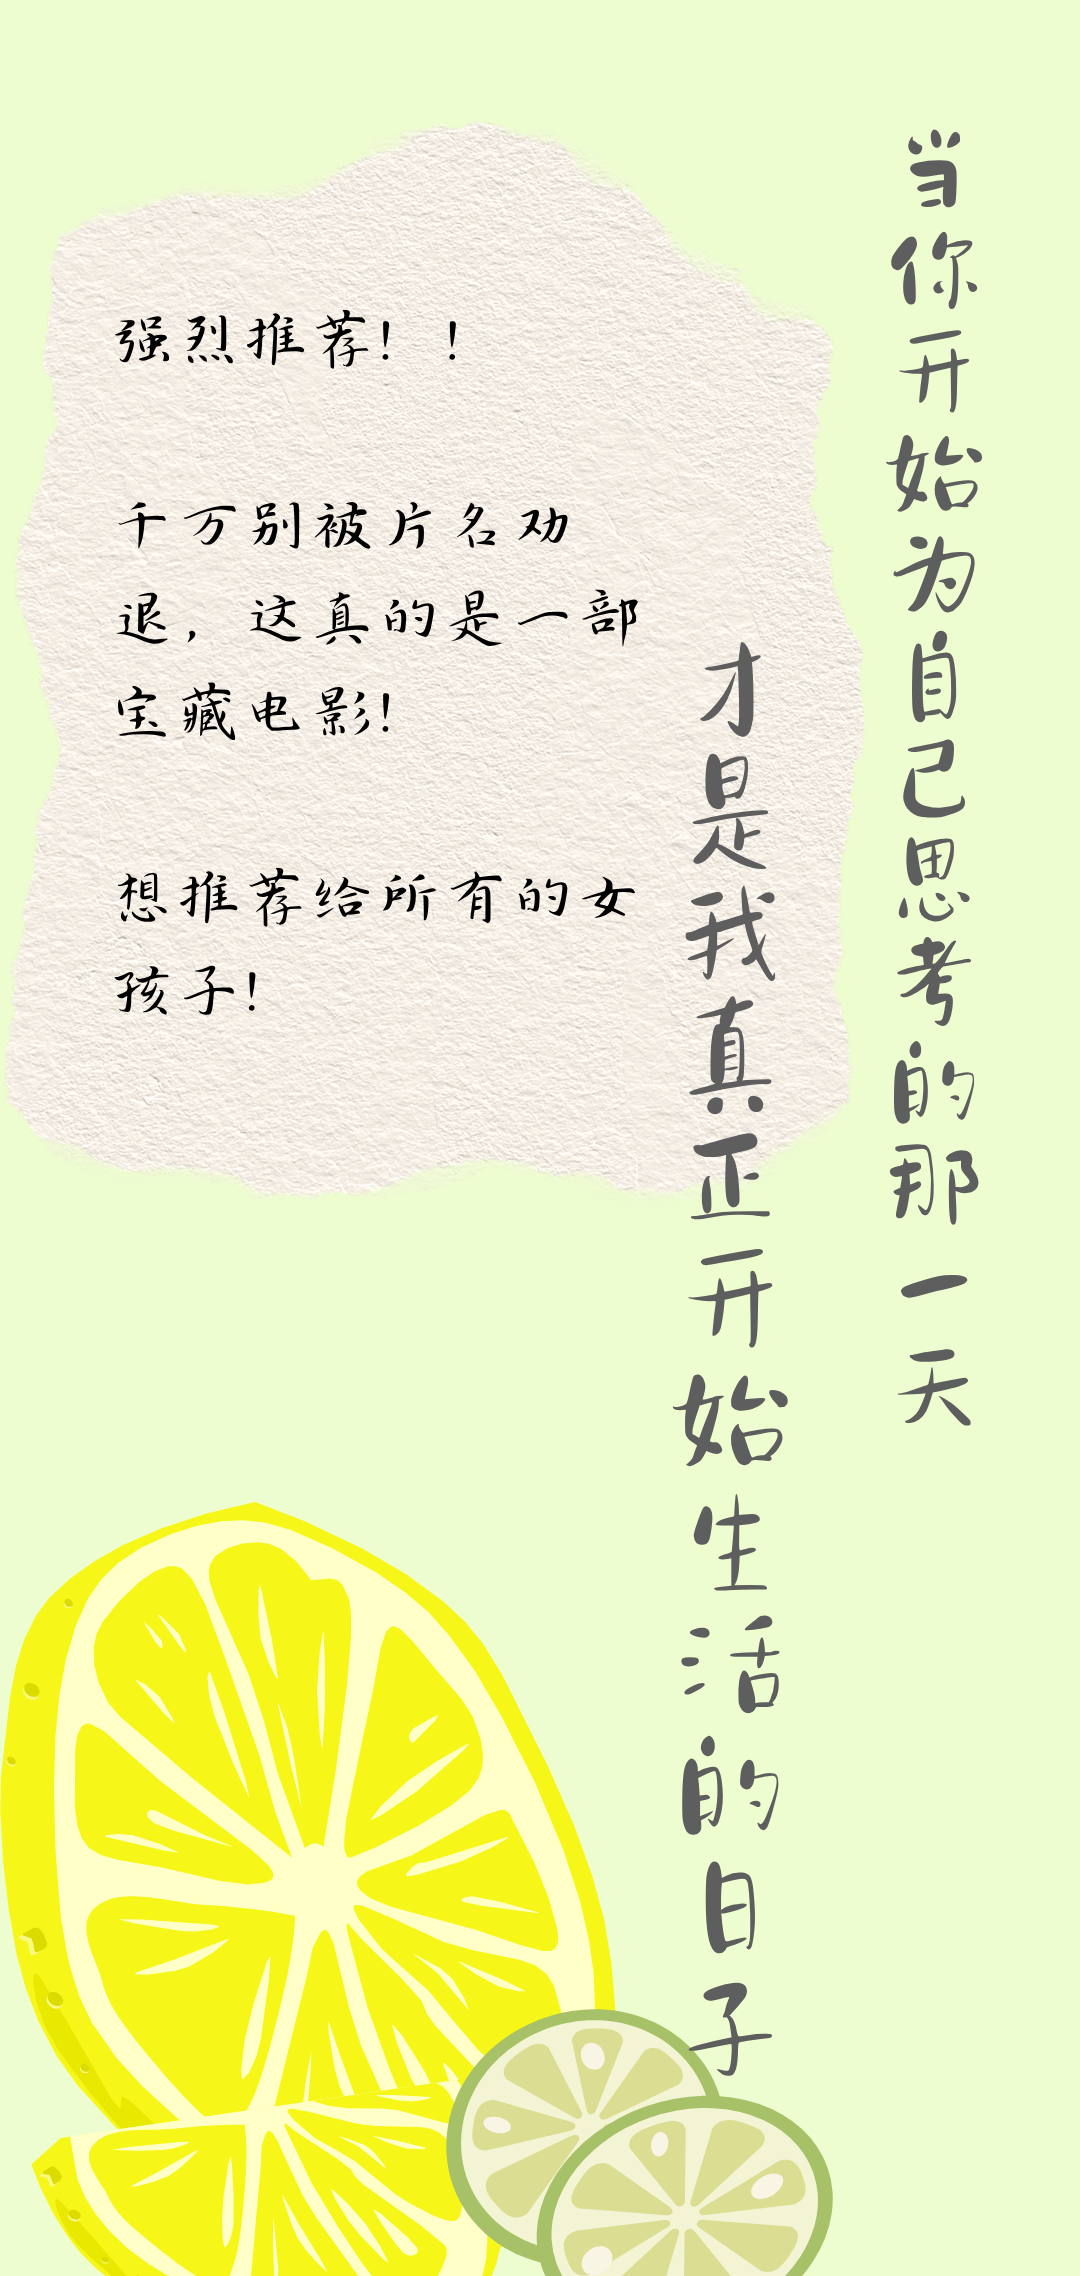 当你开始为自己思考的那一天
才是我真正开始生活的日子
强烈推荐！！
千万别被片名劝
退，这真的是一部
宝藏电影！
想推荐给所有的女
孩子！